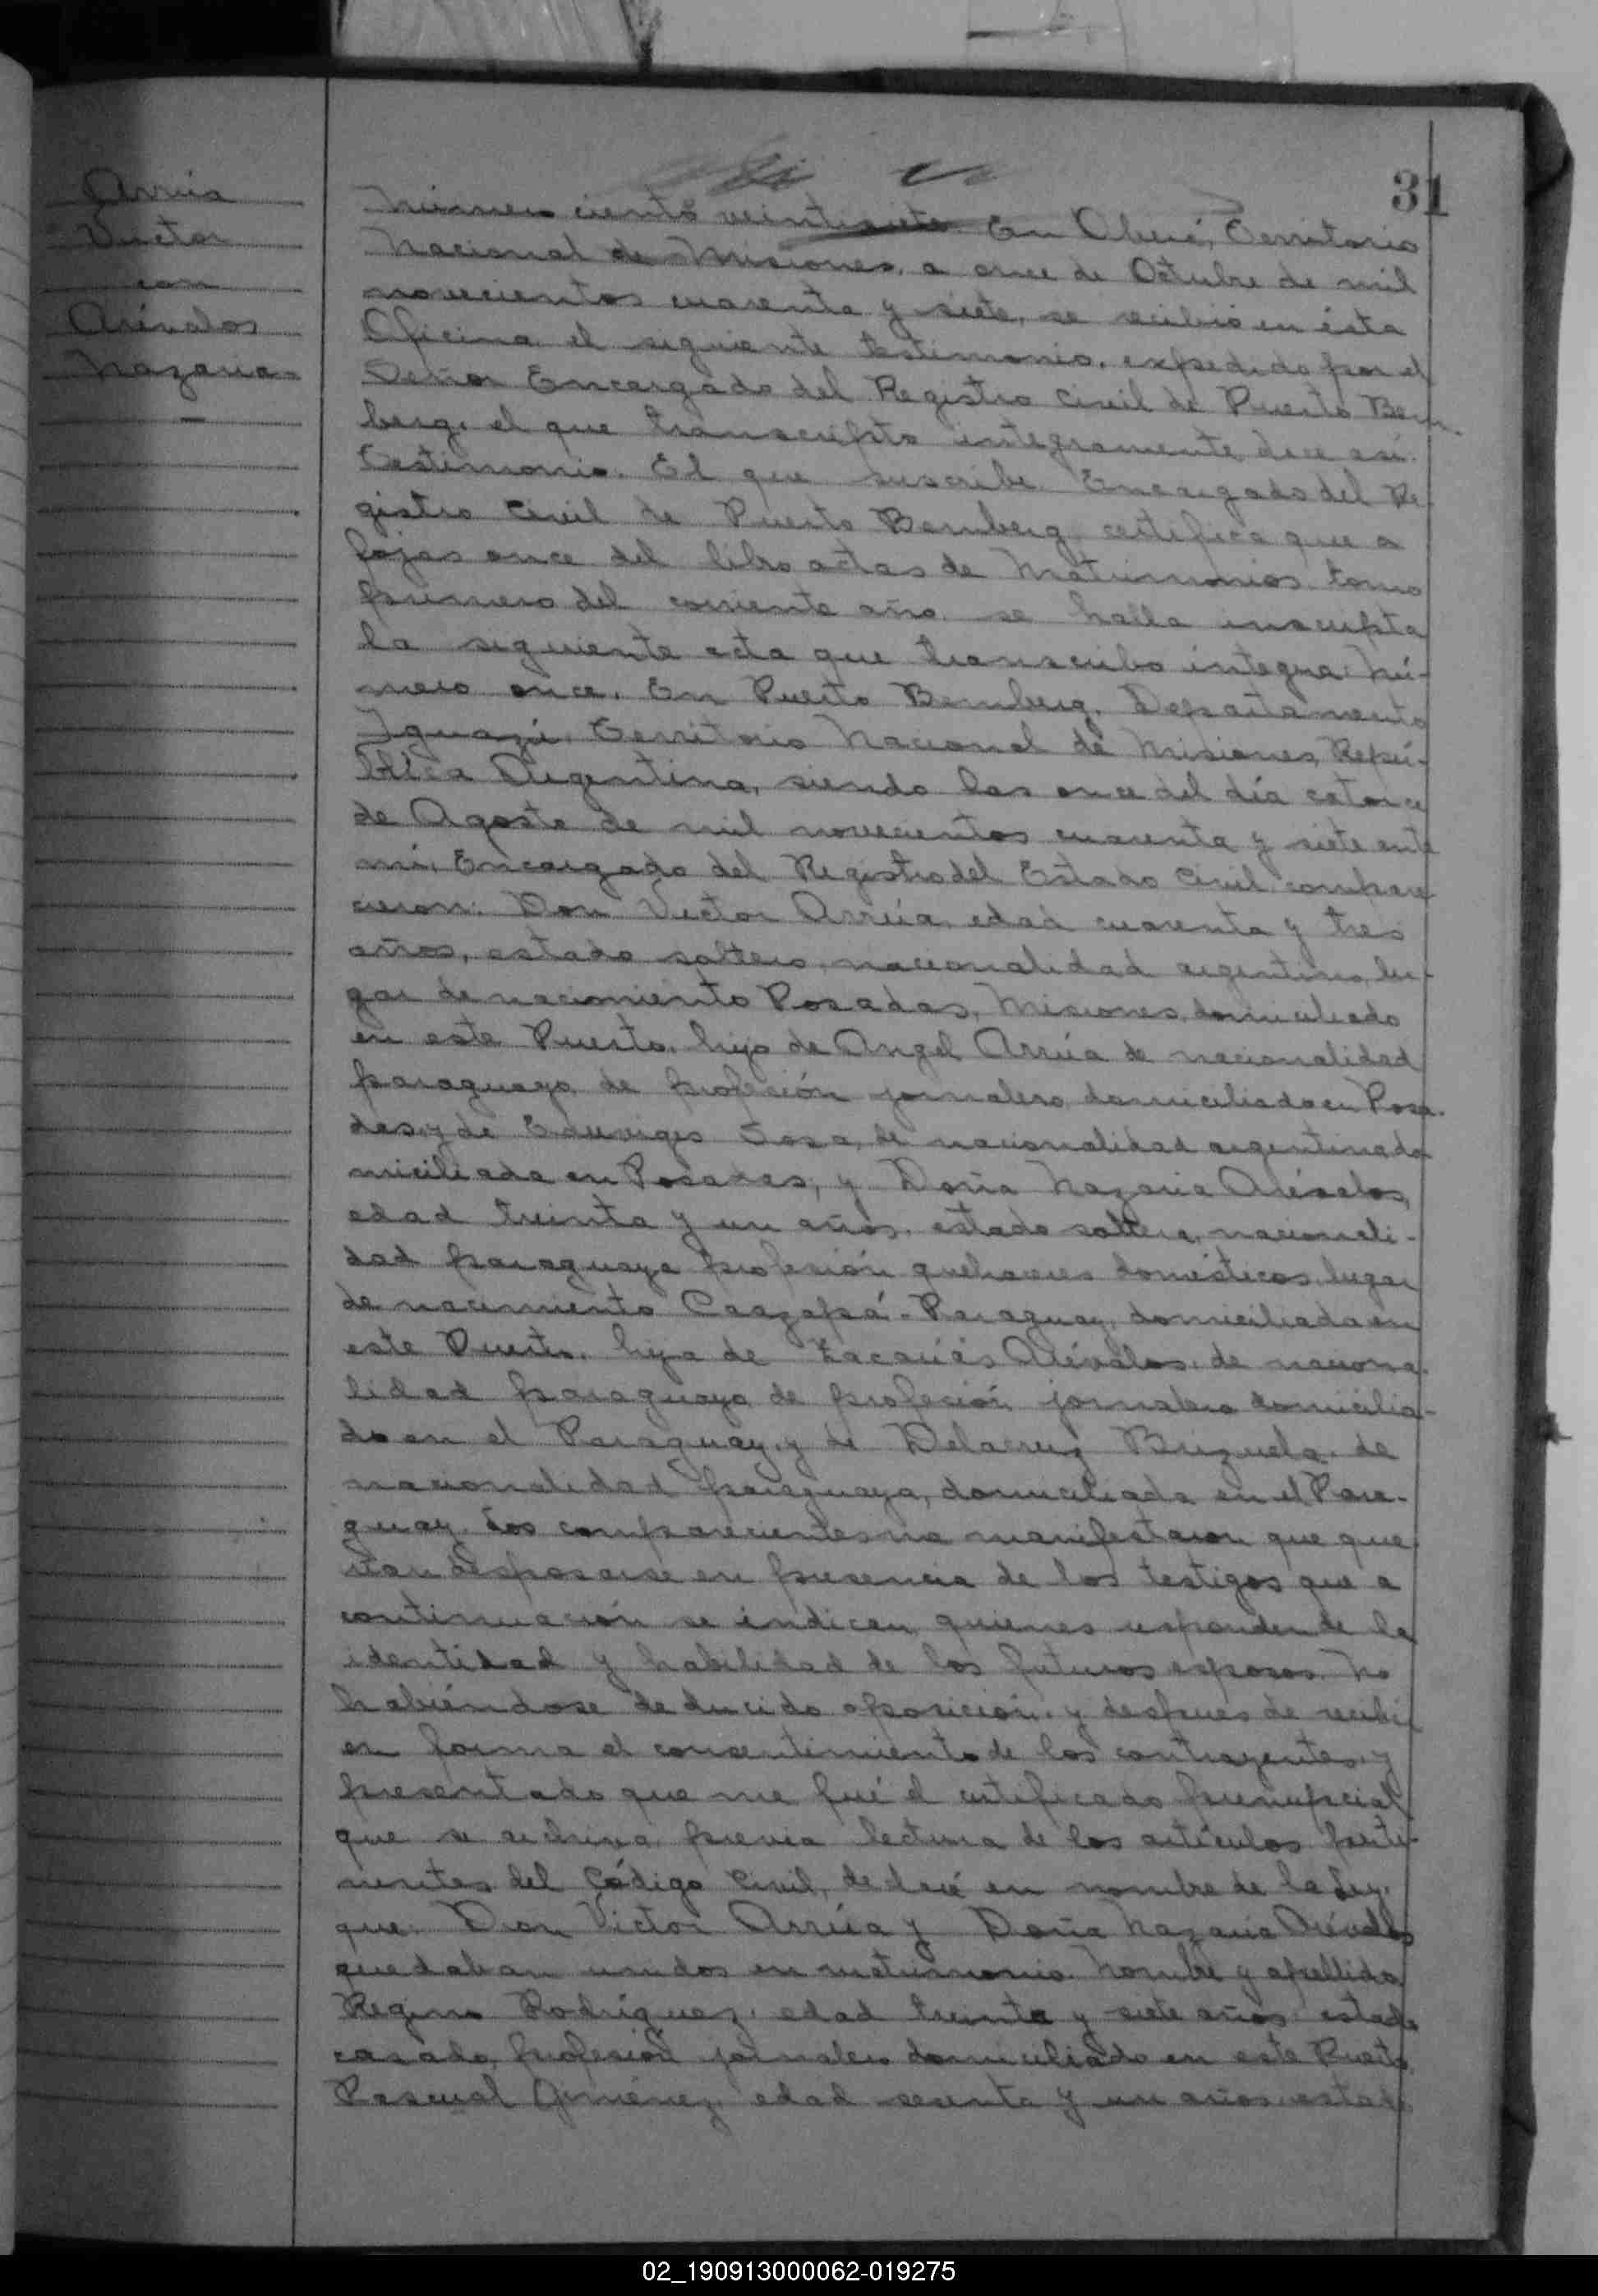 31
Arrúa
Victor
con
Arévalos
Nazaria
Número ciento veintisiete. En Oberá, Territorio
Nacional de Misiones, a once de Octubre de mil
novecientos cuarenta y siete, se recibió en ésta
Oficina el siguiente testimonio, expedido por el
Señor Encargado del Registro Civil de Puerto Bem-
berg, el que transcripto integramente dice así:
Testimonio. El que suscribe Encargado del Re-
gistro Civil de Puerto Bemberg certifica que a
fojas once del libro actas de Matrimonios tomo
primero del corriente año se halla inscripta
la siguiente acta que transcribo integra: Nú-
mero once. En Puerto Bemberg, Departamento
Iguazú, Territorio Nacional de Misiones, Repú-
blica Argentina, siendo las once del día catorce
de Agosto de mil novecientos cuarenta y siete ante
mí, Encargado del Registro del Estado Civil compare
cieron: Don Victor Arrúa edad cuarenta y tres
años, estado soltero, nacionalidad argentino, lu-
gar de nacimiento Posadas, Misiones, domiciliado
en este Puerto, hijo de Angel Arrúa de nacionalidad
paraguayo, de profesión jornalero, domiciliado en Posa-
das, y de Eduviges Sosa, de nacionalidad argentina do
miciliada en Posadas, y Doña Nazaria Arévalos,
edad treinta y un años, estado soltera, nacionali-
dad paraguaya profesión quehaceres domésticos, lugar
de nacimiento Caazapá-Paraguay, domiciliada en
este Puerto, hija de Zacarías Arévalos, de naciona-
lidad paraguayo, de profesión jornalero domicilia-
do en el Paraguay, y de Delacruz Brizuela, de
nacionalidad paraguaya, domiciliada en el Para-
guay. Los comparecientes me manifestaron que que-
rían desposarse en presencia de los testigos que a
continuación se indican, quienes responden de la
identidad y habilidad de los futuros esposos. No
habiéndose deducido oposición, y despues de recibir
en forma el consentimiento de los contrayentes, y
presentado que me fué el certificado prenupcial
que se archiva, previa lectura de los artículos perti-
nentes del Código Civil, declaré en nombre de la Ley,
que: Don Victor Arrúa y Doña Nazaria Arévalos
quedaban unidos en matrimonio. Nombre y apellido
Regino Rodríguez, edad treinta y siete años, estado
casado, profesión jornalero domiciliado en este Puerto,
Pascual Giménez, edad sesenta y un años, estado
02_190913000062-019275